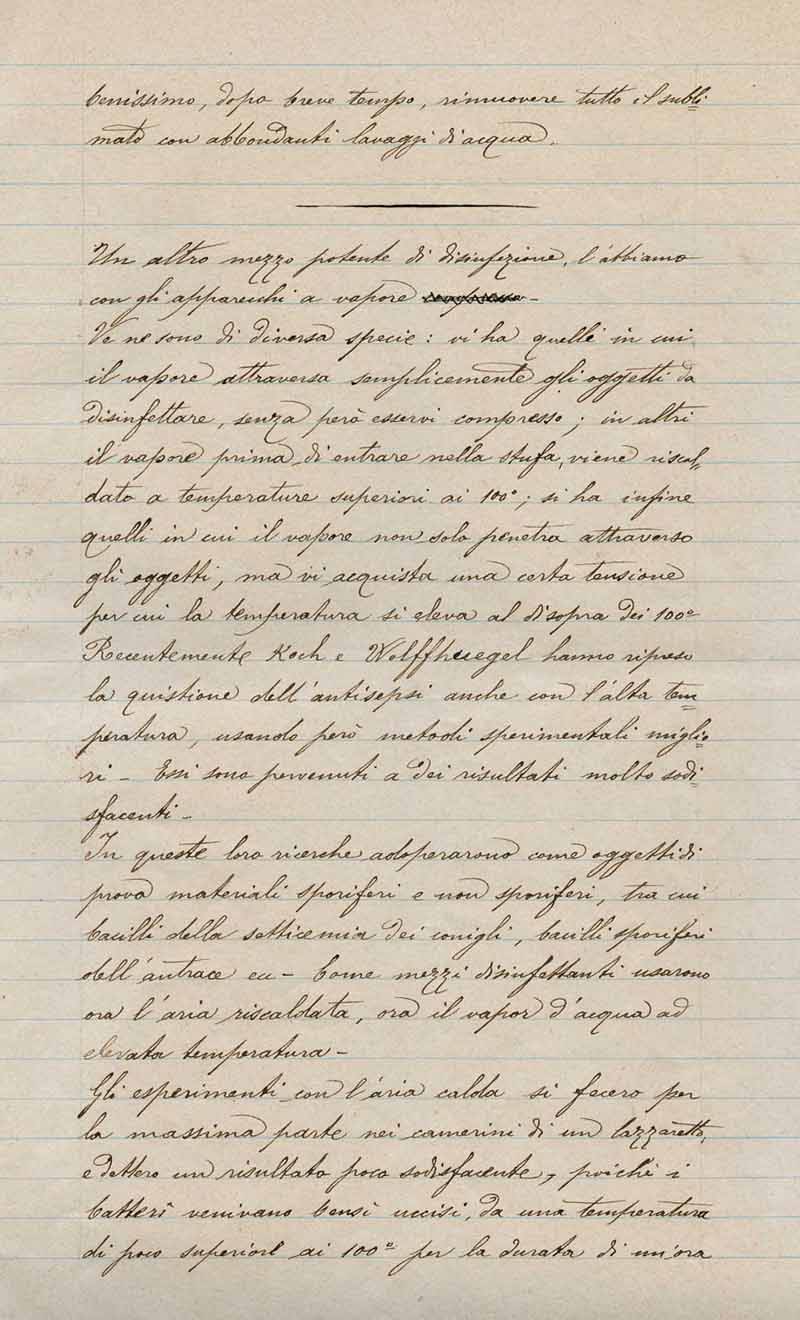 benissimo, dopo breve tempo, rimuovere tutto il subli=
mato con abbondanti lavaggi di acqua.
Un altro mezzo potente di disinfezione, l'abbiamo
con gli apparecchi a vapore compresso -
Ve ne sono di diversa specie: vi ha quelli in cui
il vapore attraversa semplicemente gli oggetti da
disinfettare, senza però esservi compresso; in altri
il vapore prima di entrare nella stufa, viene riscal=
dato a temperature superiori ai 100°; si ha infine
quelli in cui il vapore non solo penetra attraverso
gli oggetti, ma vi acquista una certa tensione
per cui la temperatura si eleva al disopra dei 100°
Recentemente Koch e Wolffhuegel hanno ripreso
la quistione dell'antisepsi anche con l'alta tem=
peratura, usando però metodi sperimentali miglio=
ri - Essi sono pervenuti a dei risultati molto sodi=
sfacenti -
In queste loro ricerche adoperarono come oggetti di
prova materiali sporiferi e non sporiferi, tra cui
bacilli della setticemia dei conigli, bacilli sporiferi
dell'antrace ecc - Come mezzi disinfettanti usarono
ora l'aria riscaldata, ora il vapor d'acqua ad
elevata temperatura -
Gli esperimenti con l'aria calda si fecero per
la massima parte nei camerini di un lazzaretto,
e dettero un risultato poco sodisfacente, poichè i
batterî venivano bensì uccisi, da una temperatura
di poco superiore ai 100° per la durata di un'ora